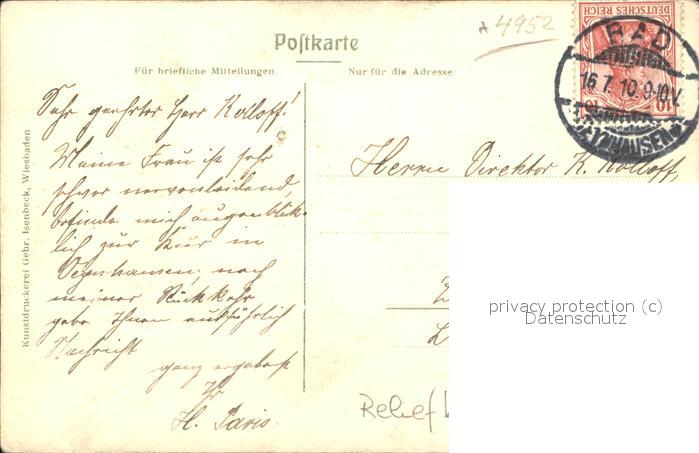 * 4952
Postkarte
Für briefliche Mitteilungen.
Nur für die Adresse
DEUTSCHES REICH
10 10
BAD
16.7.10.9-10V.
OEYNHAUSEN
Sehr geehrter Herr Kolloff!
Meine Frau ist sehr
schwer nervenleidend,
befinde mich augenblick-
lich zur Kur in
Oeynhausen, nach
meiner Rückkehr
gebe Ihnen ausführlich
Nachricht
ganz ergebenst
Ihr
H. Paris.
Herrn Direktor K. Kolloff,
L
Relief
Kunstdruckerei Gebr. Isenbeck, Wiesbaden
privacy protection (c)
Datenschutz